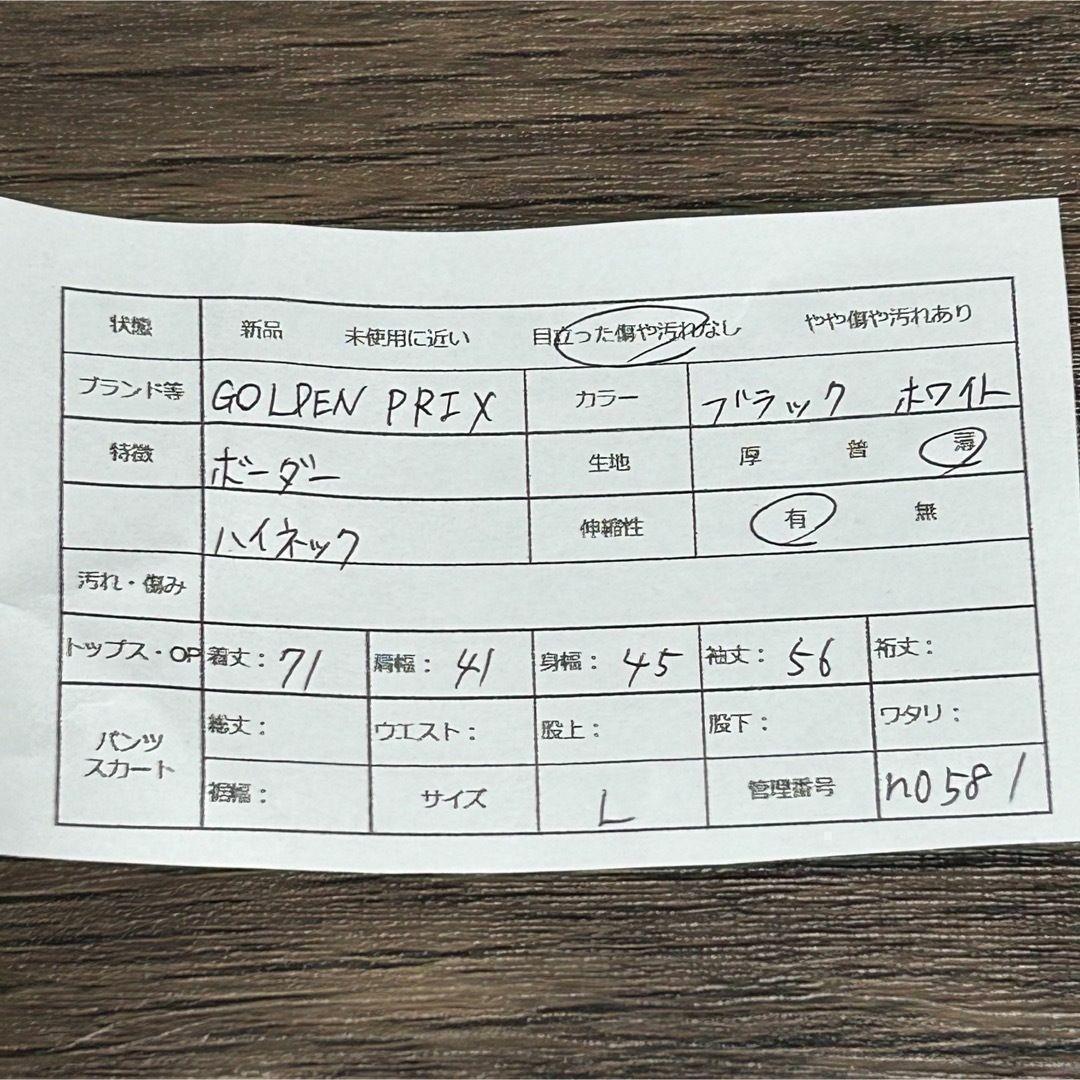 状態 新品 未使用に近い 目立った傷や汚れなし やや傷や汚れあり
ブランド等 GOLDEN PRIX カラー ブラック ホワイト
特徴 ボーダー 生地 厚 普 薄
ハイネック 伸縮性 有 無
汚れ・傷み
トップス・OP 着丈: 71 肩幅: 41 身幅: 45 袖丈: 56 裄丈:
パンツ スカート 総丈: ウエスト: 股上: 股下: ワタリ:
裾幅: サイズ L 管理番号 no581